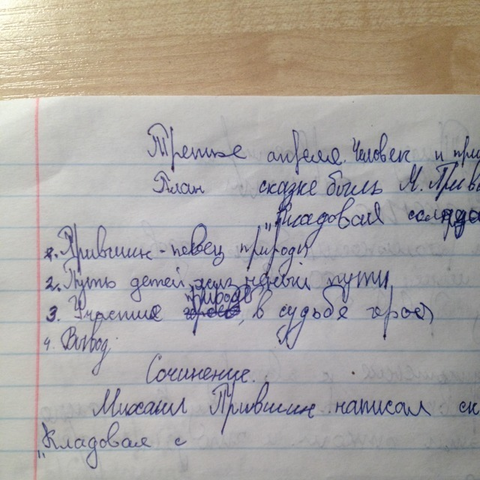 Третье апреля. Человек и при
План сказке быль М. Пришв
"Кладовая солнца
1. Пришвин - певец природы
2. Путь детей
3. Участие природы в судьбе
4. Вывод.
Сочинение.
Михаил Пришвин написал ск
"Кладовая с